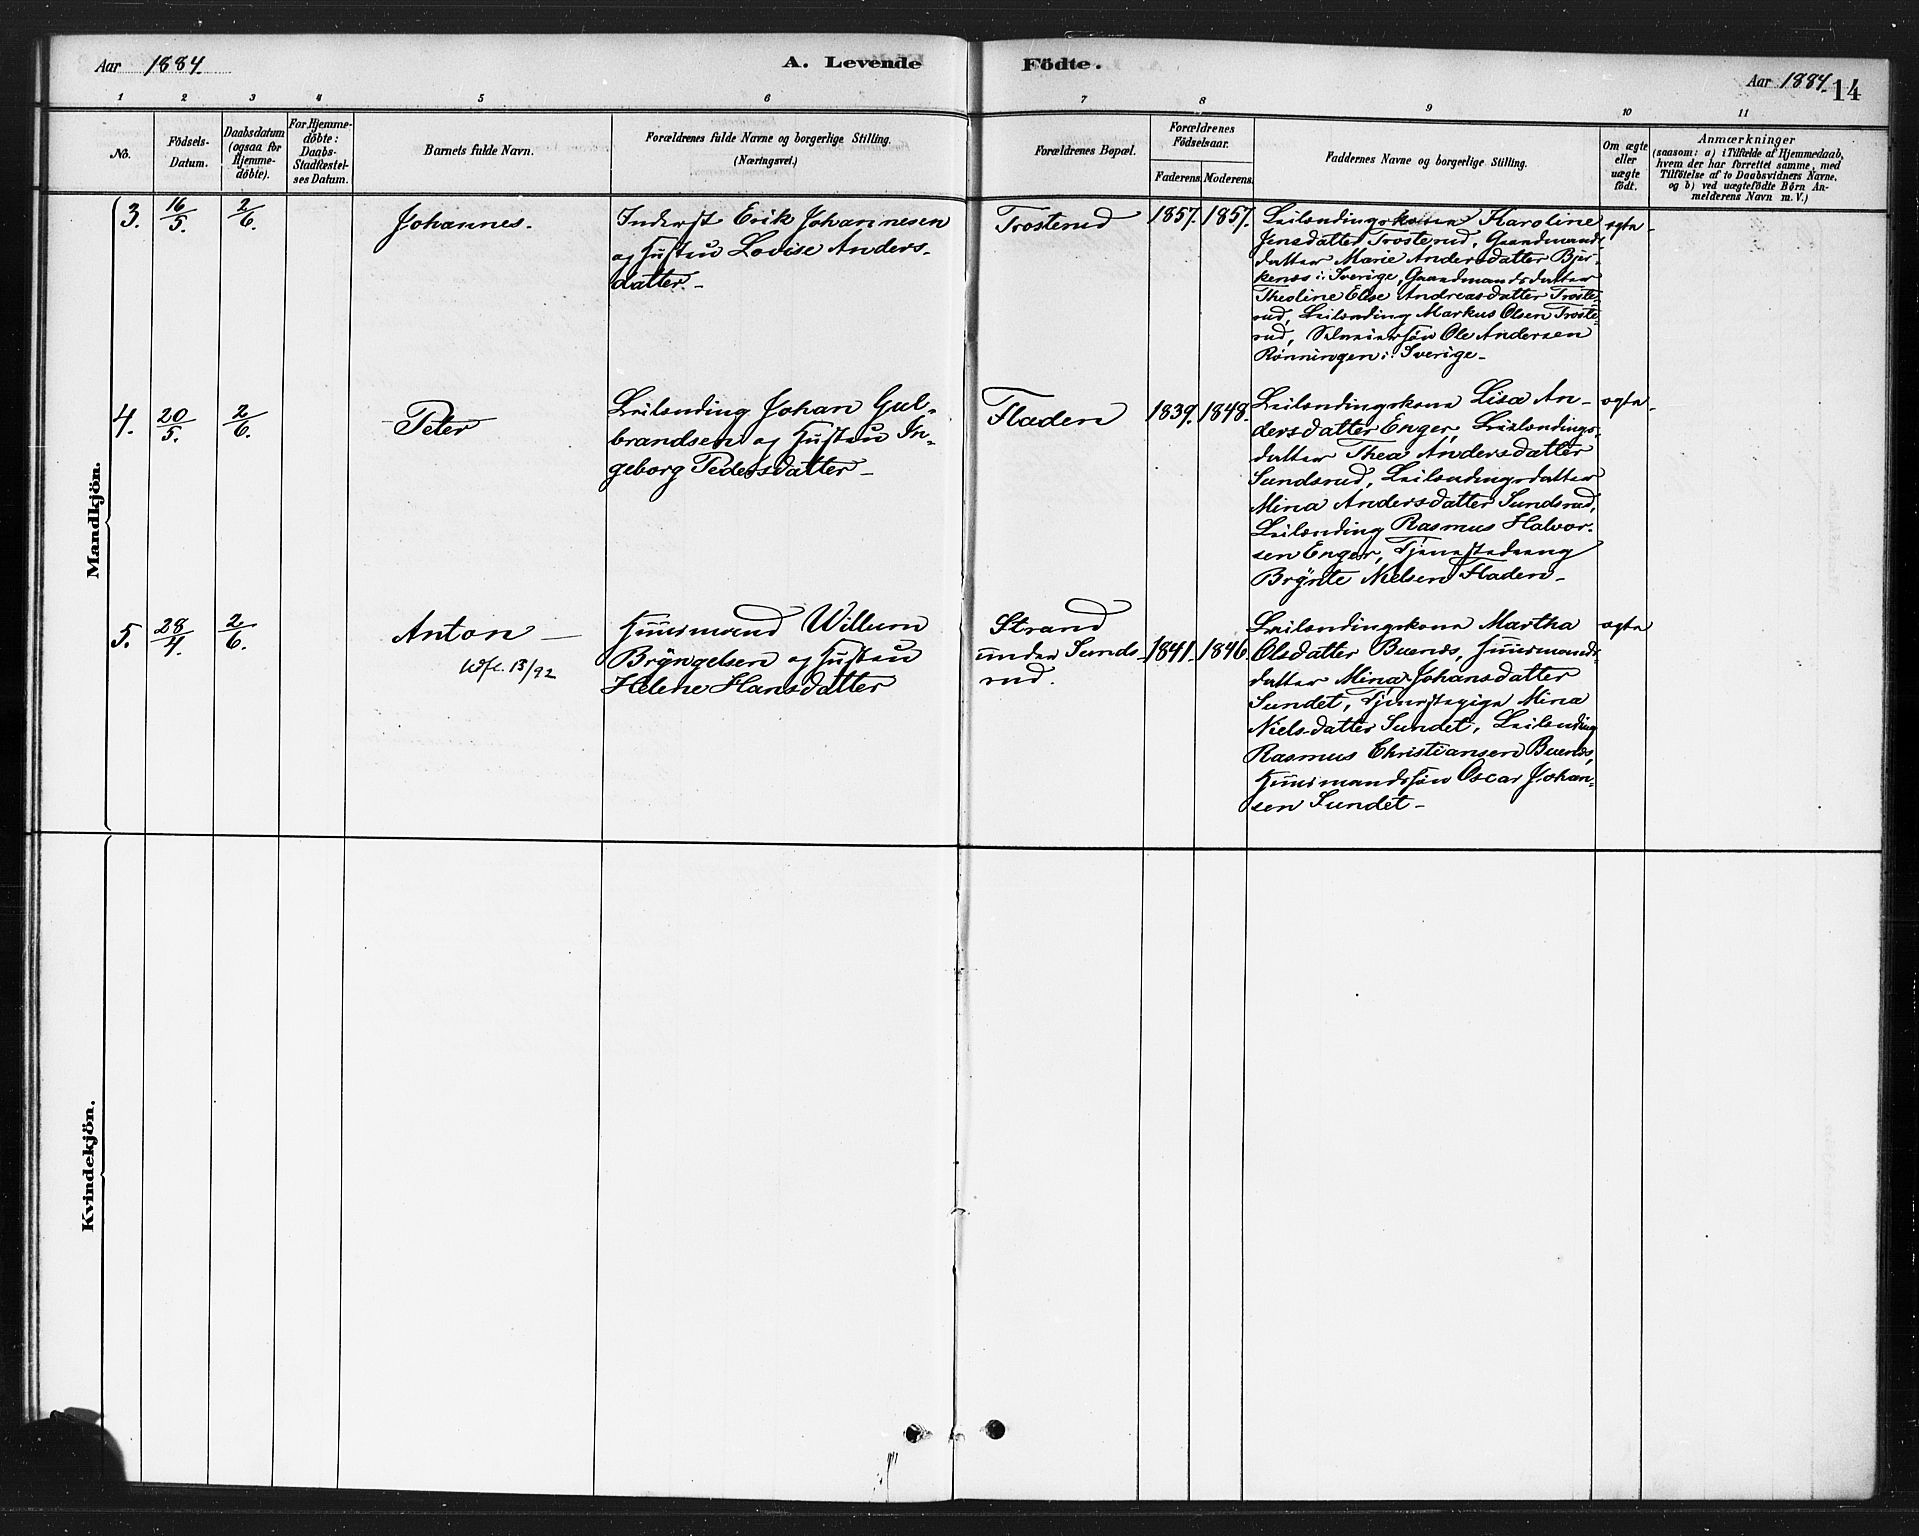 Aar 1884.
A. Levende Födte.
Aar 1884.
14
1 2 3 4 5 6 7 8 9 10 11
No.
Födsels-
Datum.
Daabsdatum
(ogsaa for
Hjemme-
döbte).
For Hjemme-
döbte:
Daabs-
Stadfæstel-
ses Datum.
Barnets fulde Navn.
Forældrenes fulde Navne og borgerlige Stilling.
(Næringsvei.)
Forældrenes Bopæl.
Forældrenes
Födselsaar.
Faderens. Moderens.
Faddernes Navne og borgerlige Stilling.
Om ægte
eller
uægte
födt.
Anmærkninger
(saasom: a) i Tilfælde af Hjemmedaab,
hvem der har forrettet samme, med
Tilföielse af to Daabsvidners Navne,
og b) ved uægtefödte Börn An-
melderens Navn m. V.)
Mandkjön.
3.
16/5.
2/6.
Johannes.
Inderst Erik Johannesen
og Hustru Lovise Anders-
datter.-
Trosterud
1857. 1857.
Leilændingskone Karoline
Jensdatter Trosterud, Gaardmands-
datter Marie Andersdatter Bjer-
kenæs i Sverige, Gaardmandsdatter
Theoline Elise Andreasdatter Troste-
rud, Leilænding Markus Olsen Troste-
rud, Selveiersön Ole Andersen
Rönningen i Sverige-
ægte-
4.
20/5.
2/6.
Peter
Leilænding Johan Gul-
brandsen og Hustru In-
geborg Pedersdatter-
Fladen
1839. 1848.
Leilændingskone Lisa An-
dersdatter Enger, Leilændings-
datter Thea Andersdatter
Sundsrud, Leilændingsdatter
Mina Andersdatter Sundsrud,
Leilænding Rasmus Halvor-
sen Enger, Tjenestedreng
Brynte Nielsen Fladen-
ægte-
5.
28/4.
2/6.
Anton-
13/92
Huusmand Willum
Bryngelsen og Hustru
Helene Hansdatter
Strand
under Sunds-
rud.
1841. 1846
Leilændingskone Martha
Olsdatter Buenæs, Huusmands-
datter Mina Johansdatter
Sundet, Tjenestepige Mina
Nielsdatter Sundet, Leilænding
Rasmus Christiansen Buenæs,
Huusmandssön Oscar Johan-
sen Sundet-
ægte
Kvindekjön.